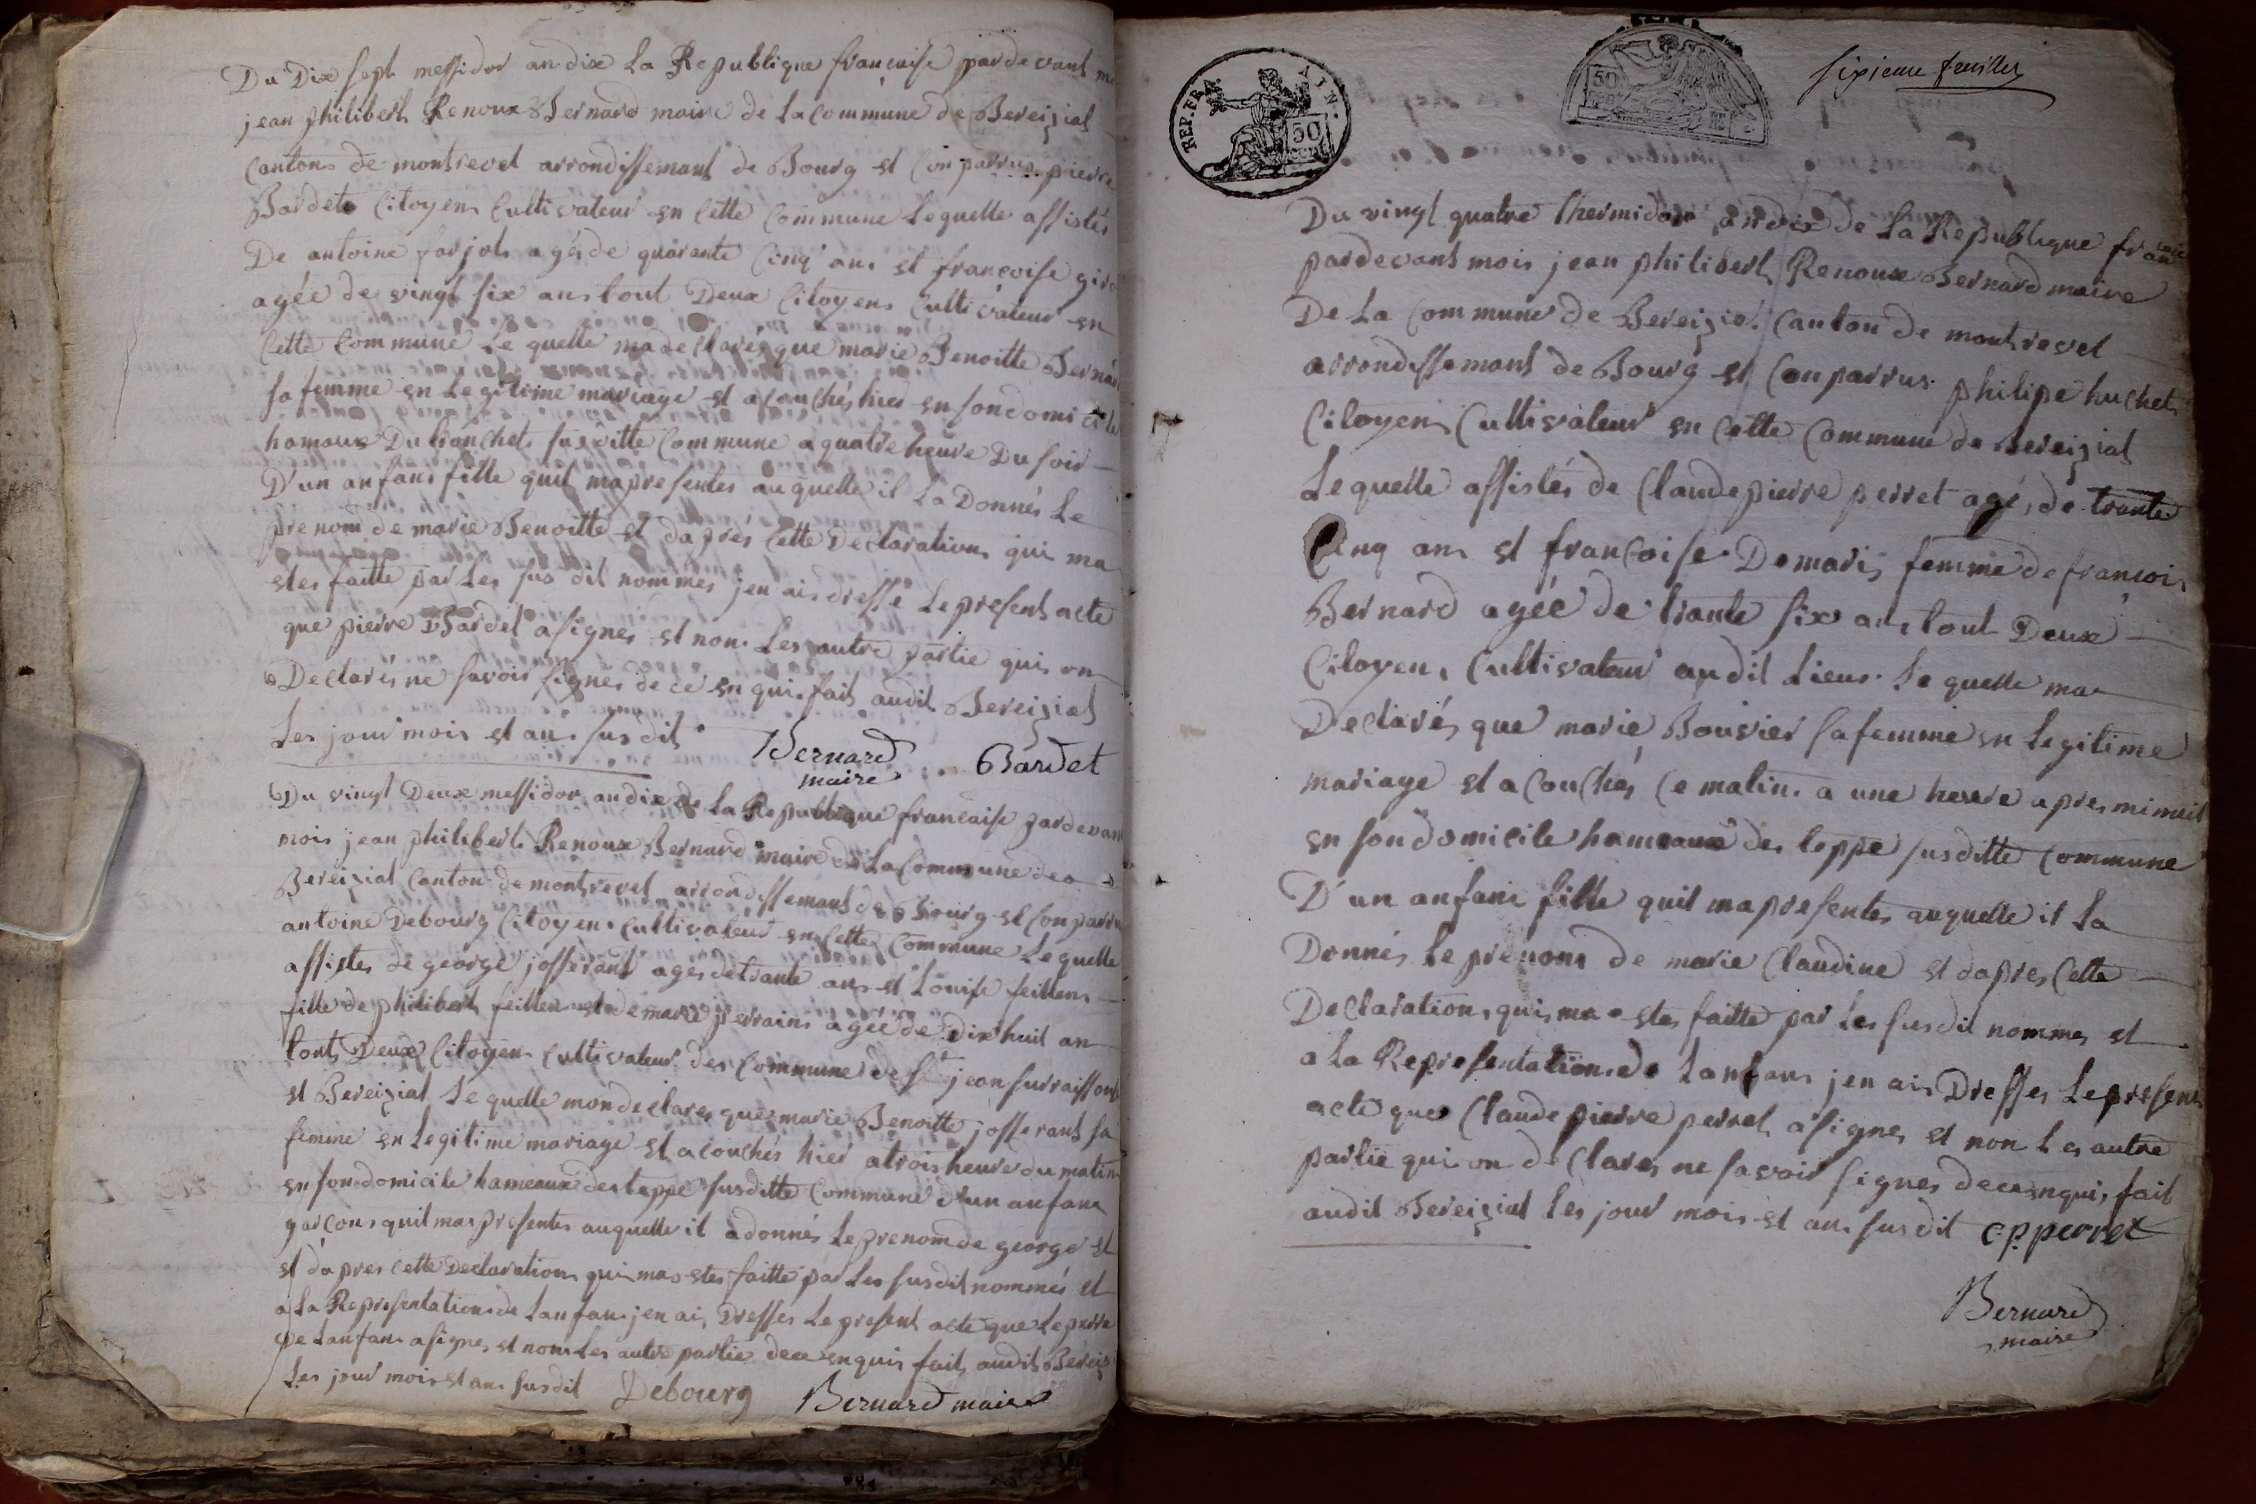 Du Dix sept messidor an dix La Republique francaise pardevant
jean philibert Renoux Bernard maire de La commune de Bereizial
Canton de montrevel arrondissemant de Bourg et Conparrus pierre
Bardet Citoyen Cultivateur en Cette Commune Lequelle assistés
De antoine farjot agés de quarante Cinq ans et francoise
agée de vingt six ans tout Deux Citoyens Cultivateur en
Cette Commune Le quelle ma declarés que marie Benoitte
sa femme en Legitime mariage et acouchés hier en son domicile
hamaux Du susditte Commune a quatre heure Du soir
D'un anfans fille quil mapresentes auquelle il La Donnés Le
prenom de marie Benoitte et daprés Cette Declaration qui ma
etes faitte par Les sus dit nommes jen ais dressé Le present acte
que pierre Bardet a signes et non Les autre partie qui on
Declarés ne savoir signes de ce en quis fait audit Bereizial
Les jour mois et an susdit
Bernard Bardet
maire
Du vingt Deux messidor an dix de La Republique francaise pardevan
mois jean philibert Renoux Bernard maire de La Commune de
Bereizial Canton de montrevel arrondissemant de Bourg et Conparru
antoine Debourg Citoyen Cultivateur en Cette Commune Le quelle
assistes de george josserant ages de trante ans et Louise feillens
fille de philibert feillens et de marie perrain agée de Dix huit an
touts Deux Citoyen Cultivateur des Commune de St jean surraissouse
et Bereizial Le quelle mon declares que marie Benoitte josserant sa
femme en Legitime mariage et acouchés hier a trois heure du matin
en son domicile hameaux des teppe susditte Commune d'un anfans
garcons quil ma presentes auquelle il a donnés Le prenom de george et
et d'apres cette Declaration qui ma etes faitte par Les susdit nommés et
a La Representation de Lanfans jen ais Dresses Le present acte que Le perre
De Lanfans a signes et non Les autre partie dece en quis fait audit
Les jour mois et an susdit Debourg Bernard maire
REP. FRA. AIN.
50
50
sixieme feuilles
Du vingt quatre thermidor an dix de La Republique
pardevant mois jean philibert Renoux Bernard maire
De La Commune de Bereizial Canton de montrevel
arrondissemant de Bourg et Conparrus philipe huchet
Citoyens Cultivateur en Cette Commune de Bereizial
Lequelle assistés de Claude pierre perret agé de trante
Cinq ans et francoise Demaris femme de francois
Bernard agée de trante six ans tout Deux
Citoyen Cultivateur audit Lieux Le quelle ma
Declarés que marie Bouvier sa femme en Legitime
mariage et acouchés Ce matin a une heure apres minuit
en son domicile hameaux des teppe susditte Commune
D'un anfans fille quil mapresentes auquelle il La
Donnés Le prenom de marie Claudine et dapres Cette
Declaration qui ma etes faitte par Les susdit nommes et
a La Representation de Lanfans jen ais Dresses Le presens
acte que Claude pierre perret a signes et non Les autre
partie qui on declares ne savoir signes dece en quis fait
audit Bereizial Les jour mois et an susdit C.p. perret
Bernard
maire